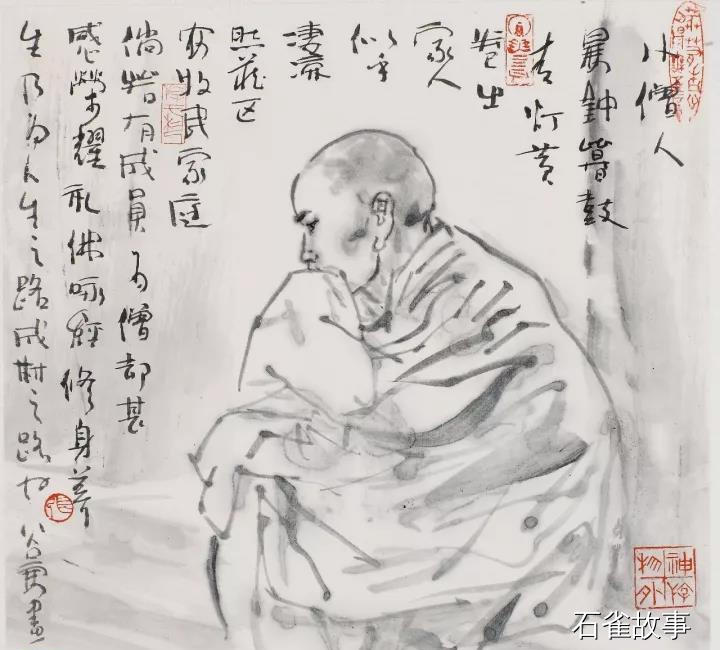 小僧人
晨鈡暮鼓
青灯黄
卷出
家人
似乎
凄凉
然藏区
农牧民家庭
倘若有成員为僧都甚
感榮耀礼佛咏经修身养
生乃为人生之路成才之路
神游
物外
石雀故事